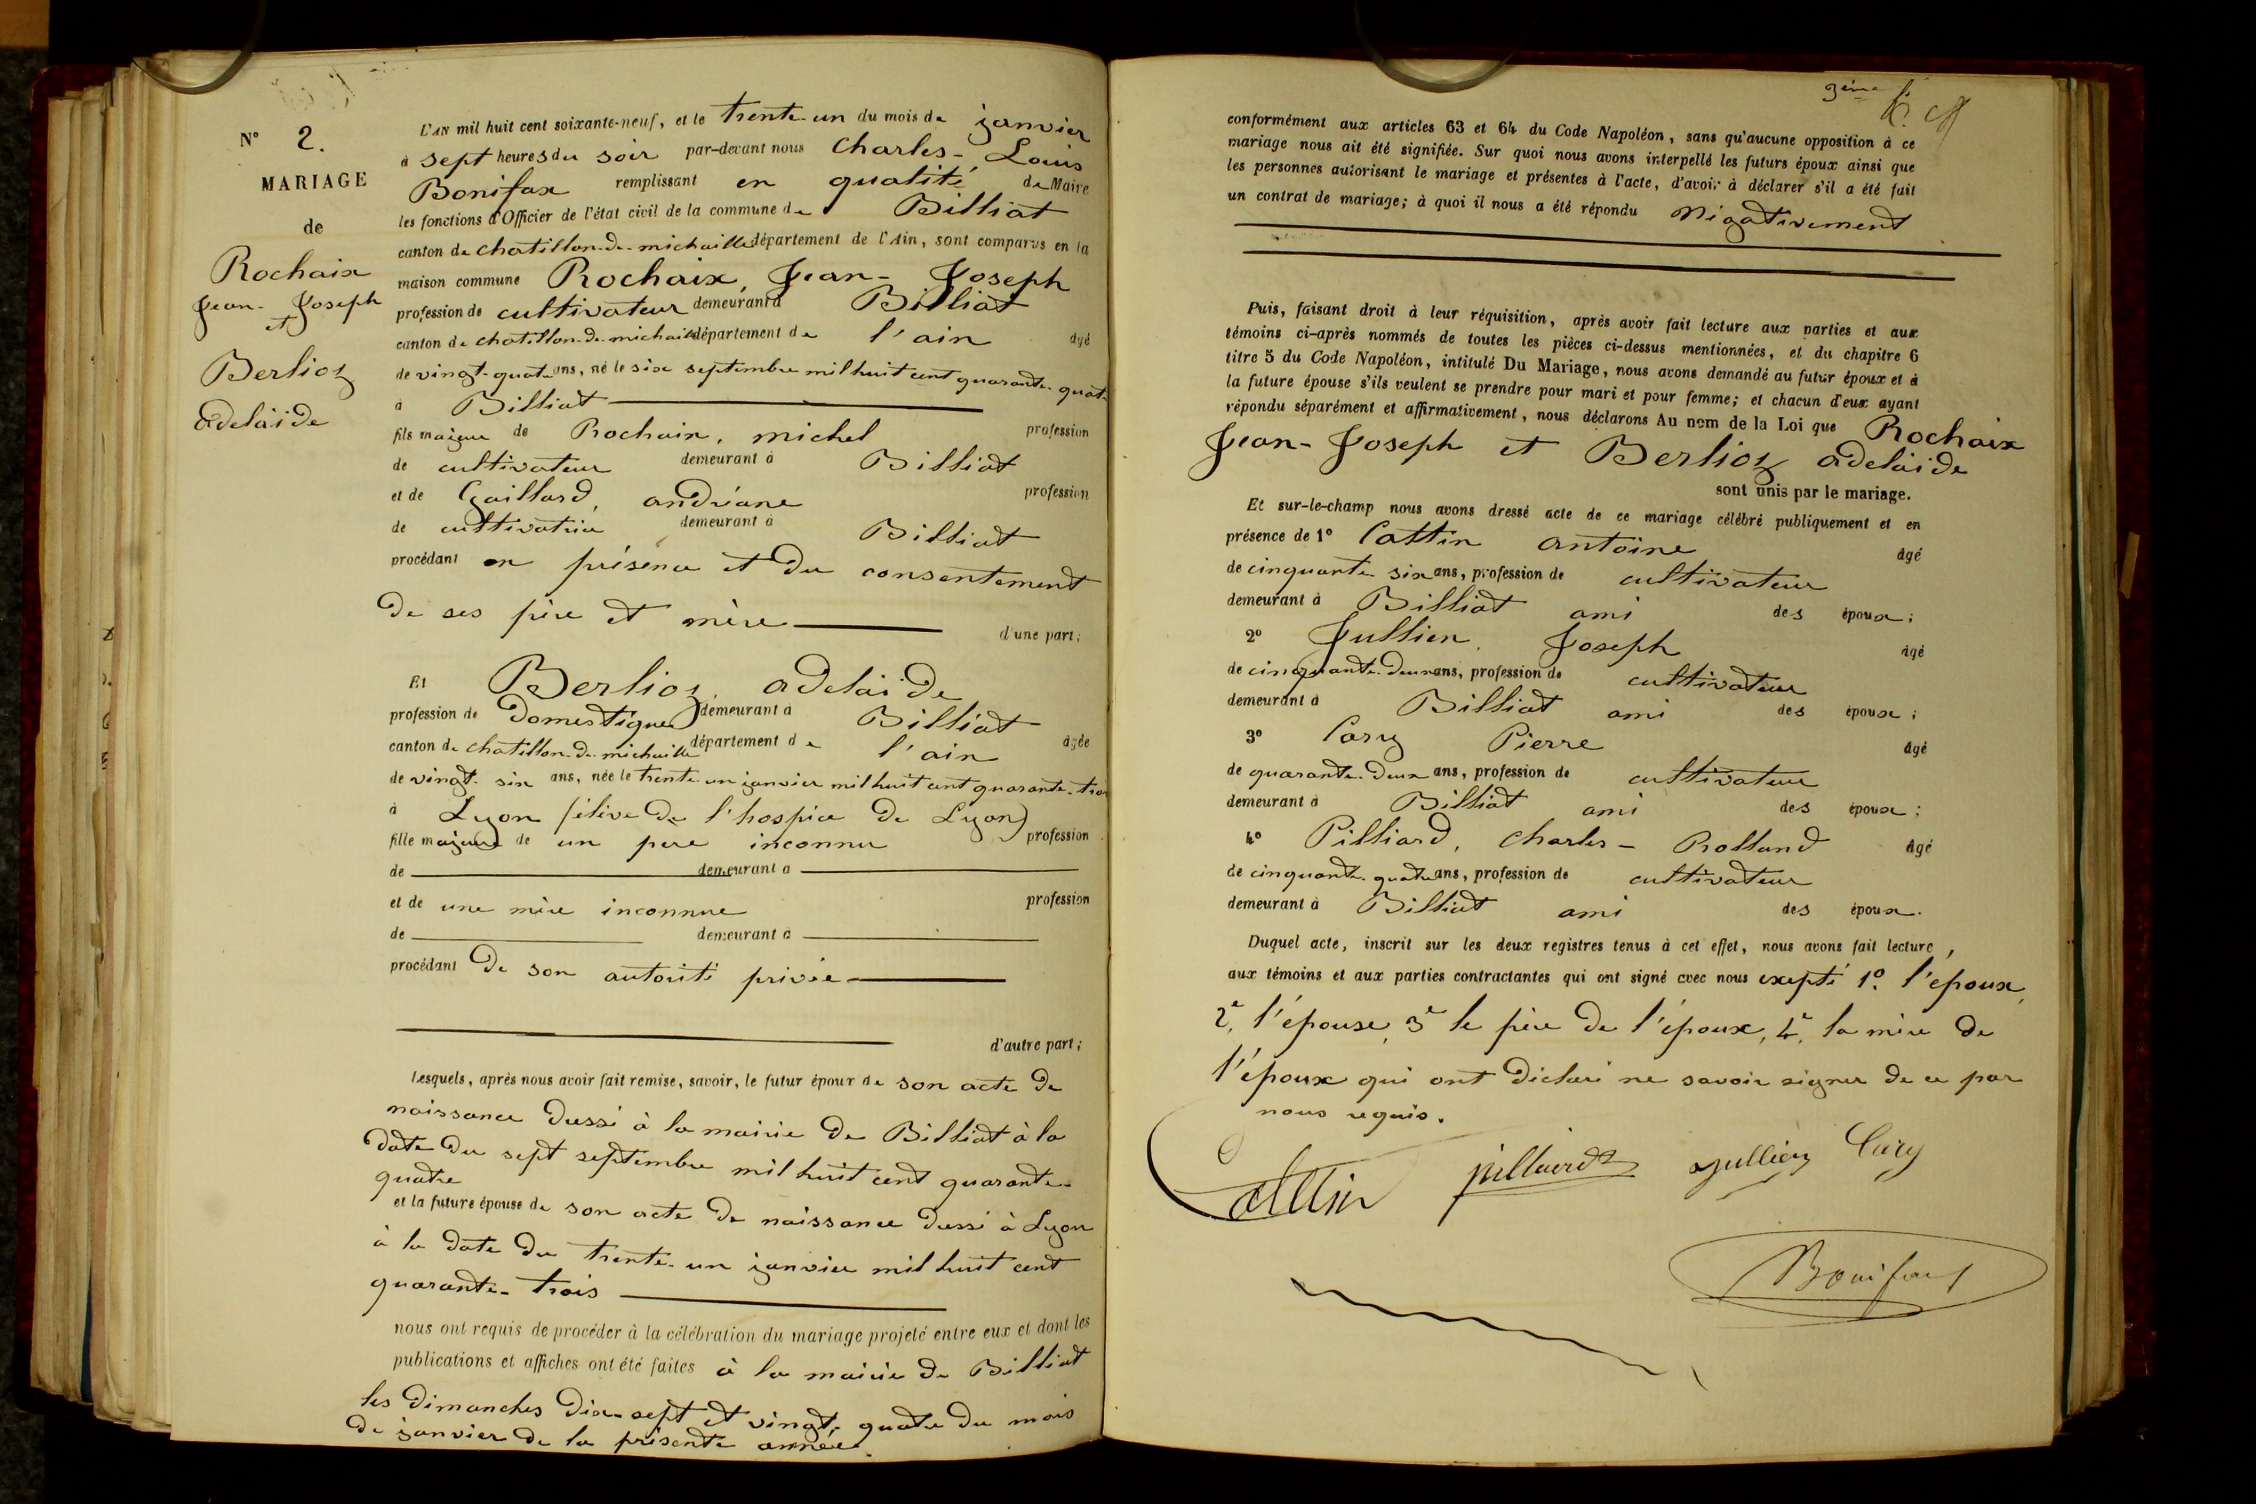 N° 2.
MARIAGE
de
Rochaix
Jean-Joseph
et
Berlioz
adelaïde
L'AN mil huit cent soixante-neuf, et le trente-un du mois de janvier
à sept heures du soir par-devant nous Charles-Louis
Bonifax remplissant en qualité de Maire
les fonctions d'Officier de l'état civil de la commune de Billiat
canton de chatillon-de-michaille département de l'Ain, sont comparus en la
maison commune Rochaix, Jean-Joseph
profession de cultivateur demeurant à Billiat
canton de chatillon-de-michaille département de l'ain âgé
de vingt-quatre ans, né le six septembre mil huit cent quarante-quatre
à Billiat
fils majeur de Rochaix, michel profession
de cultivateur demeurant à Billiat
et de Gaillard, andréane profession
de cultivatrice demeurant à Billiat
procédant en présence et du consentement
de ses père et mère d'une part;
Et Berlioz, adelaïde
profession de domestique demeurant à Billiat
canton de chatillon-de-michaille département de l'ain âgée
de vingt-six ans, née le trente-un janvier mil huit cent quarante-trois
à Lyon (élève de l'hospice de Lyon)
fille majeure de un pere inconnu profession
de demeurant à
et de une mère inconnue profession
de demeurant à
procédant de son autorité privée
d'autre part;
Lesquels, après nous avoir fait remise, savoir, le futur époux de son acte de
naissance dressé à la mairie de Billiat à la
date du sept septembre mil huit cent quarante-
quatre
et la future épouse de son acte de naissance dressé à Lyon
à la date du trente-un janvier mil huit cent
quarante-trois
nous ont requis de procéder à la célébration du mariage projeté entre eux et dont les
publications et affiches ont été faites à la mairie de Billiat
les dimanches dix-sept et vingt-quatre du mois
de janvier de la présente année.
3ème
conformément aux articles 63 et 64 du Code Napoléon, sans qu'aucune opposition à ce
mariage nous ait été signifiée. Sur quoi nous avons interpellé les futurs époux ainsi que
les personnes autorisant le mariage et présentes à l'acte, d'avoir à déclarer s'il a été fait
un contrat de mariage; à quoi il nous a été répondu Négativement
Puis, faisant droit à leur réquisition, après avoir fait lecture aux parties et aux
témoins ci-après nommés de toutes les pièces ci-dessus mentionnées, et du chapitre 6
titre 5 du Code Napoléon, intitulé Du Mariage, nous avons demandé au futur époux et à
la future épouse s'ils veulent se prendre pour mari et pour femme; et chacun d'eux ayant
répondu séparément et affirmativement, nous déclarons Au nom de la Loi que Rochaix
Jean-Joseph et Berlioz adelaïde
sont unis par le mariage.
Et sur-le-champ nous avons dressé acte de ce mariage célébré publiquement et en
présence de 1° Cattin antoine âgé
de cinquante six ans, profession de cultivateur
demeurant à Billiat ami des époux;
2° Jullien, Joseph âgé
de cinquante-deux ans, profession de cultivateur
demeurant à Billiat ami des époux;
3° Carry Pierre âgé
de quarante-deux ans, profession de cultivateur
demeurant à Billiat ami des époux;
4° Pilliard, Charles-Rolland âgé
de cinquante-quatre ans, profession de cultivateur
demeurant à Billiat ami des époux.
Duquel acte, inscrit sur les deux registres tenus à cet effet, nous avons fait lecture,
aux témoins et aux parties contractantes qui ont signé avec nous excepté 1° l'époux,
2e, l'épouse, 3e le père de l'époux, 4e, la mère de
l'époux qui ont déclaré ne savoir signer de ce par
nous requis.
Cattin pilliard jullien Cary
Bonifax